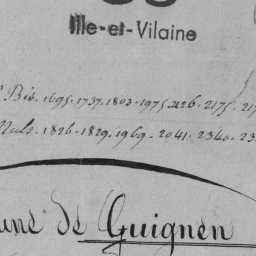 Ille-et-Vilaine
Bis. 1695. 1737. 1803. 1975. 2126. 2175. 217
Nuls. 1826. 1829. 1969. 2041. 2340. 23
une de Guignen